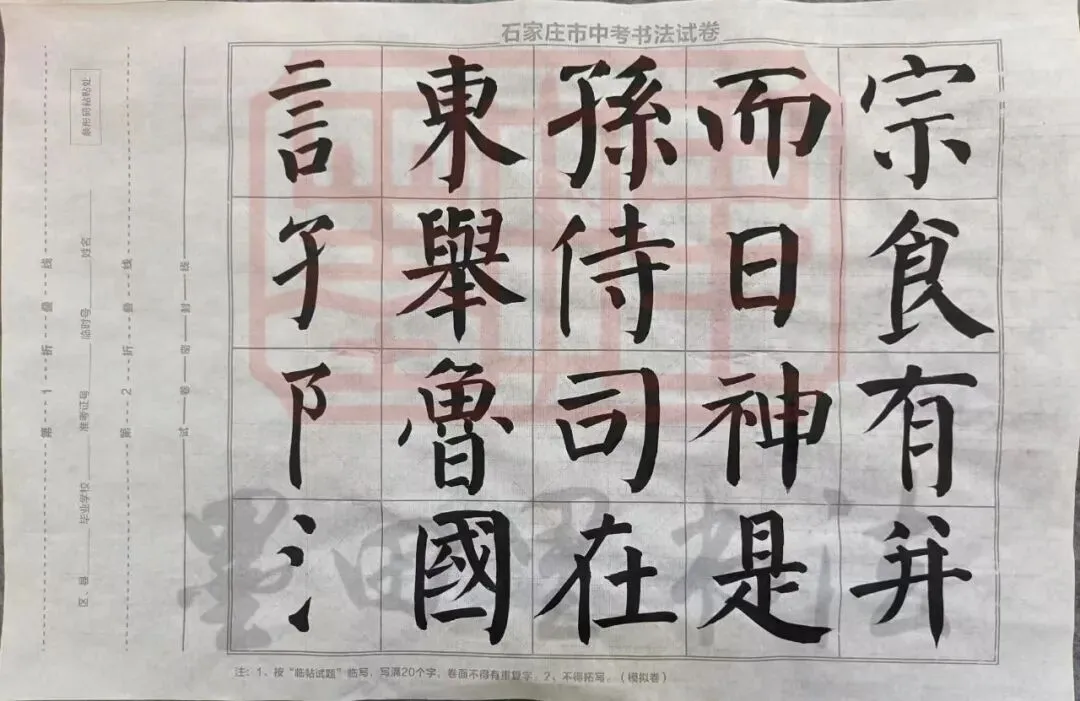 石家庄市中考书法试卷
宗食有并
而日神是
孫侍司在
東舉魯國
言
阝氵
条形码粘贴处
第1折叠线
区、县 毕业学校 准考证号 临时号 姓名
第2折叠线
试卷密封线
注：1、按“临帖试题”临写，写满20个字，卷面不得有重复字。2、不得拓写。（模拟卷）